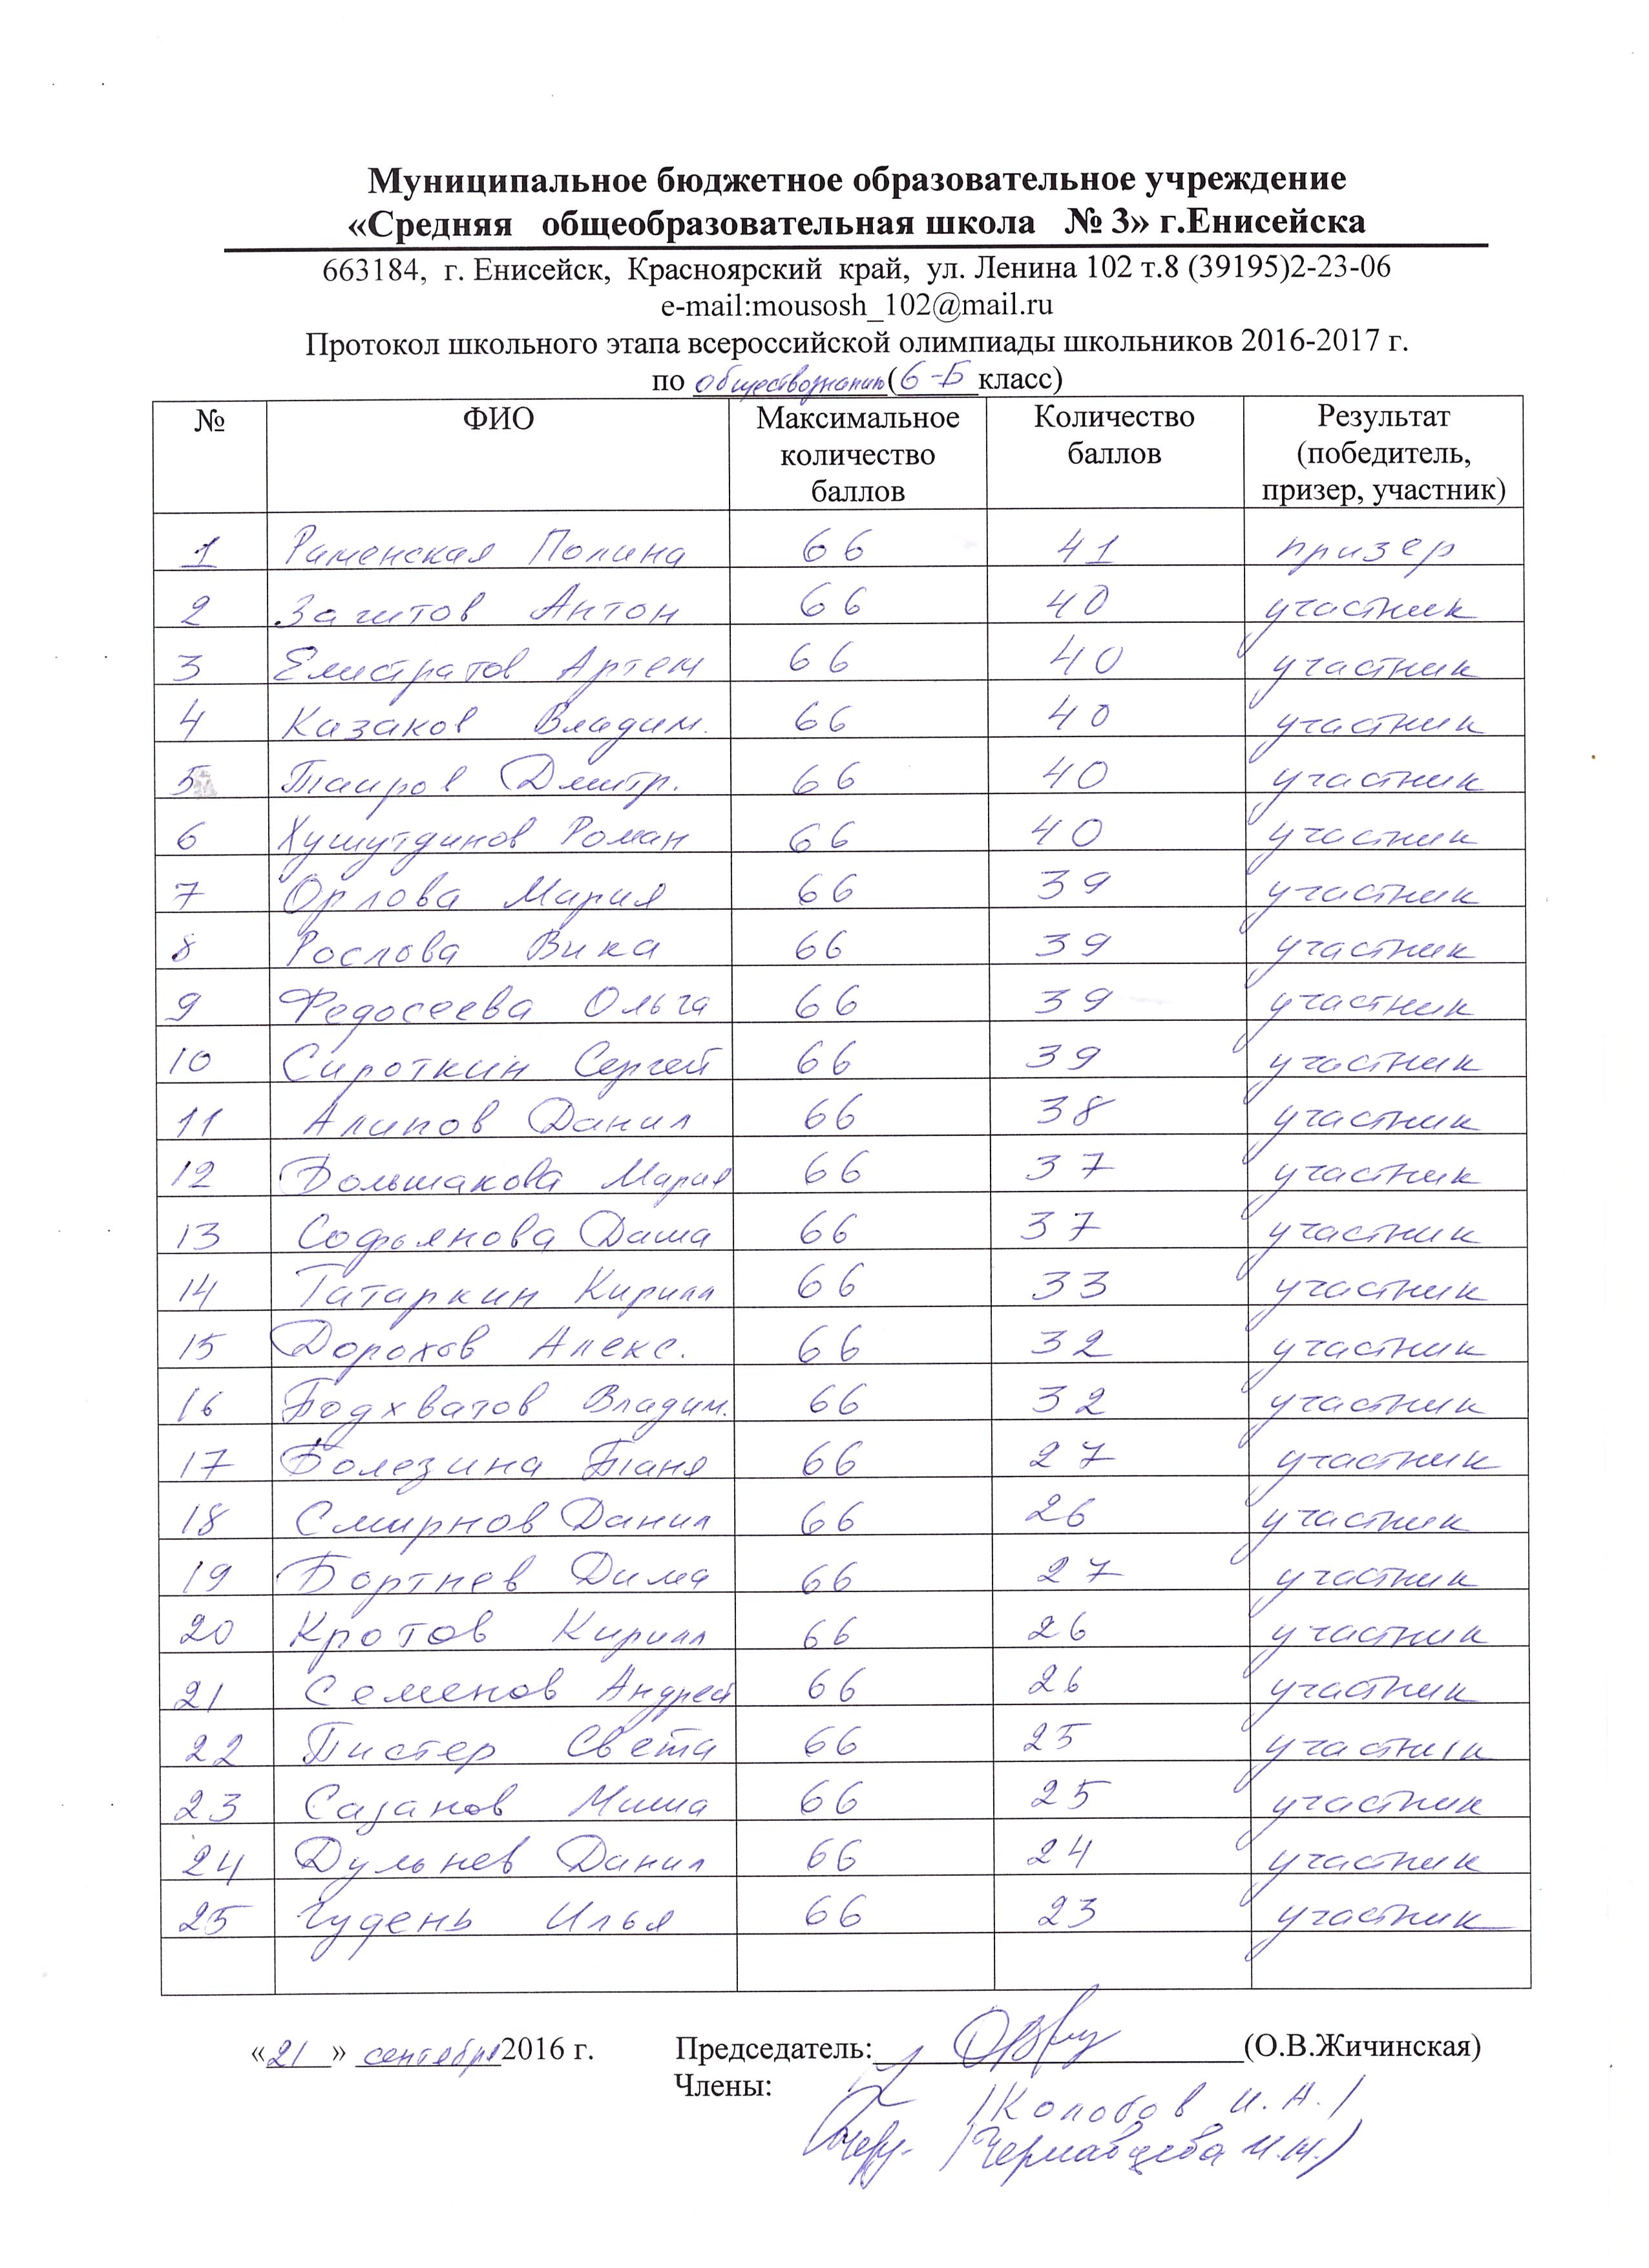 Муниципальное бюджетное образовательное учреждение
«Средняя общеобразовательная школа № 3» г.Енисейска
663184, г. Енисейск, Красноярский край, ул. Ленина 102 т.8 (39195)2-23-06
e-mail:mousosh_102@mail.ru
Протокол школьного этапа всероссийской олимпиады школьников 2016-2017 г.
по обществознанию (6-Б класс)
№ ФИО Максимальное количество баллов Количество баллов Результат (победитель, призер, участник)
1 Раменская Полина 66 41 призер
2 Загитов Антон 66 40 участник
3 Елистратов Артем 66 40 участник
4 Казаков Владим. 66 40 участник
5 Таиров Дмитр. 66 40 участник
6 Хушутдинов Роман 66 40 участник
7 Орлова Мария 66 39 участник
8 Рослова Вика 66 39 участник
9 Федосеева Ольга 66 39 участник
10 Сироткин Сергей 66 39 участник
11 Алипов Данил 66 38 участник
12 Большакова Мария 66 37 участник
13 Софьянова Даша 66 37 участник
14 Татаркин Кирилл 66 33 участник
15 Дорохов Алекс. 66 32 участник
16 Подхватов Владим. 66 32 участник
17 Болезина Таня 66 27 участник
18 Смирнов Данил 66 26 участник
19 Бортнев Дима 66 27 участник
20 Кротов Кирилл 66 26 участник
21 Семенов Андрей 66 26 участник
22 Пистер Света 66 25 участник
23 Сазанов Миша 66 25 участник
24 Дульнев Данил 66 24 участник
25 Чудень Илья 66 23 участник
«21» сентября 2016 г. Председатель: (О.В.Жичинская)
Члены:
/Колобов И.А./
/Чермавцева И.Н./